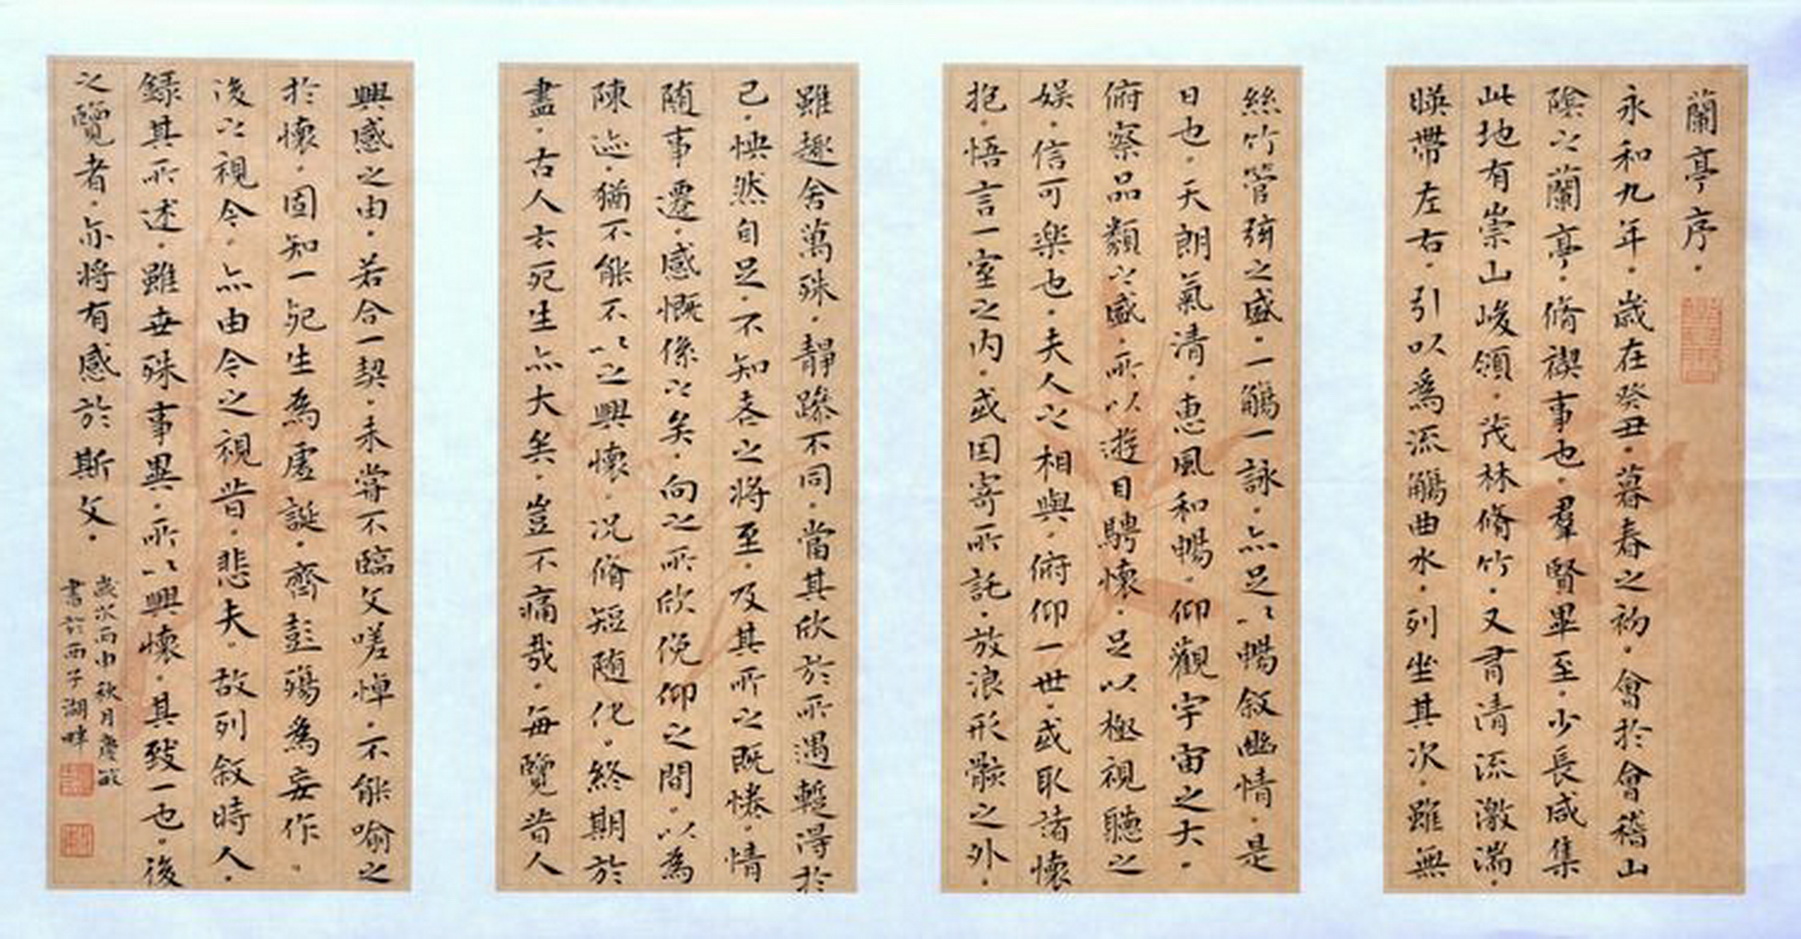 蘭亭序。
永和九年。歲在癸丑。暮春之初。會於會稽山
陰之蘭亭。脩禊事也。羣賢畢至。少長咸集
此地有崇山峻領。茂林脩竹。又有清流激湍。
暎帶左右。引以為流觴曲水。列坐其次。雖無
絲竹管弦之盛。一觴一詠。亦足以暢叙幽情。是
日也。天朗氣清。恵風和暢。仰觀宇宙之大。
俯察品類之盛。所以遊目騁懷。足以極視聽之
娱。信可樂也。夫人之相與。俯仰一世。或取諸懷
抱。悟言一室之内。或因寄所託。放浪形骸之外。
雖趣舍萬殊。静躁不同。當其欣於所遇蹔得於
己。怏然自足。不知老之將至。及其所之既惓。情
随事遷。感慨係之矣。向之所欣俛仰之間。以為
陳迹。猶不能不以之興懷。况脩短随化。終期於
盡。古人云死生亦大矣。豈不痛哉。每覽昔人
興感之由。若合一契。未嘗不臨文嗟悼。不能喻之
於懷。固知一死生為虚誕。齊彭殤為妄作。
後之視今。亦由今之視昔。悲夫。故列叙時人。
録其所述。雖世殊事異。所以興懷。其致一也。後
之覽者。亦将有感於斯文。
歲次丙申秋月慶敏
書於西子湖畔